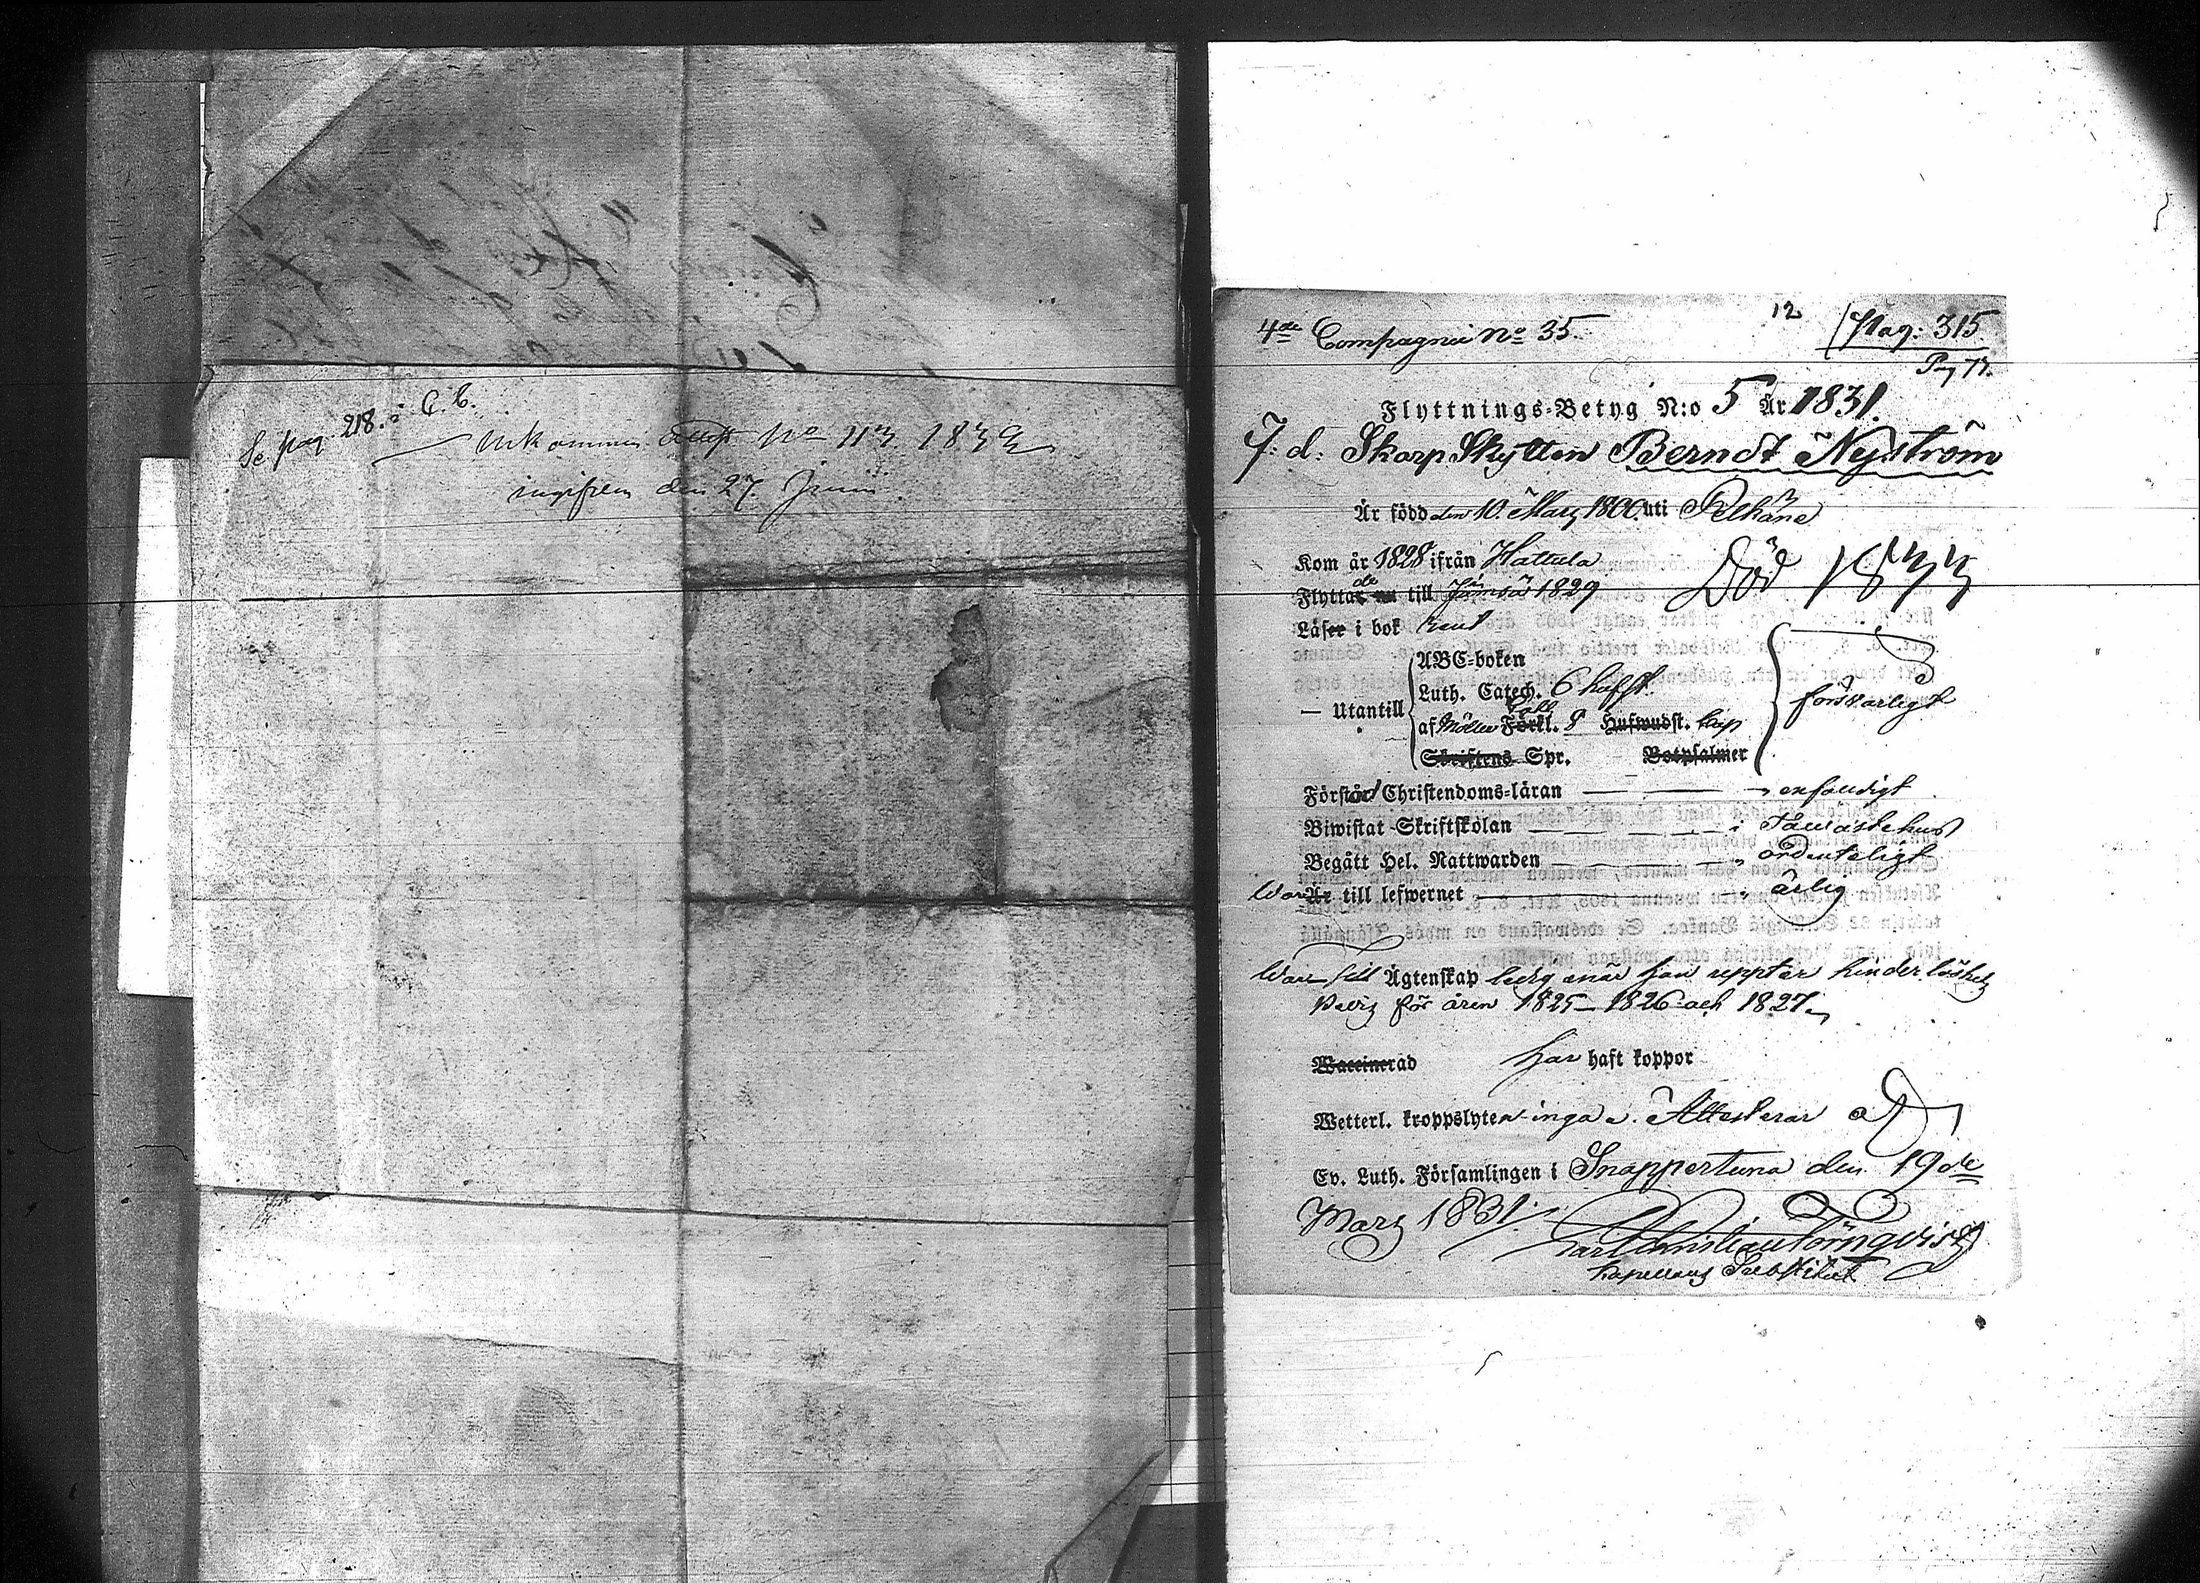 Se pag. 218. i C. B.
Inkommen Attest No 113. 1833
ingifven den 27. Junii.
4de Compagnie No 35.
12
Pag: 315
Flyttnings-Betyg N:o 5 År 1831.
F. d. SkarpSkytten Berndt Nyström
Är född den 10. Mars 1800. uti Pelkäne
Kom år 1828 ifrån Hattula
Död 1833
Flyttade till Jämsä 1829
Läser i bok rent
ABC-boken
— Utantill Luth. Catech. 6 hufst.
af Möllers Förkl. Hufwudst.
försvarligt
Skriftens Spr. Botpsalmer
Förstår Christendoms-läran — — — enfaldigt
Biwistat Skriftskolan — — — Tavastehus
Begått Hel. Nattwarden — — — ordenteligt
War Är till lefwernet — — — ärlig
War till Ägtenskap ledig enär han uppter hinderlöshets
Betyg för åren 1825 — 1826 och 1827
Waccinerad har haft koppor
Wetterl. kroppslyten inga. Attesterar
Ev. Luth. Församlingen i Snappertuna den 19de
Mars 1831.
Carl Christian Törnqvist
Kapellans Substitut